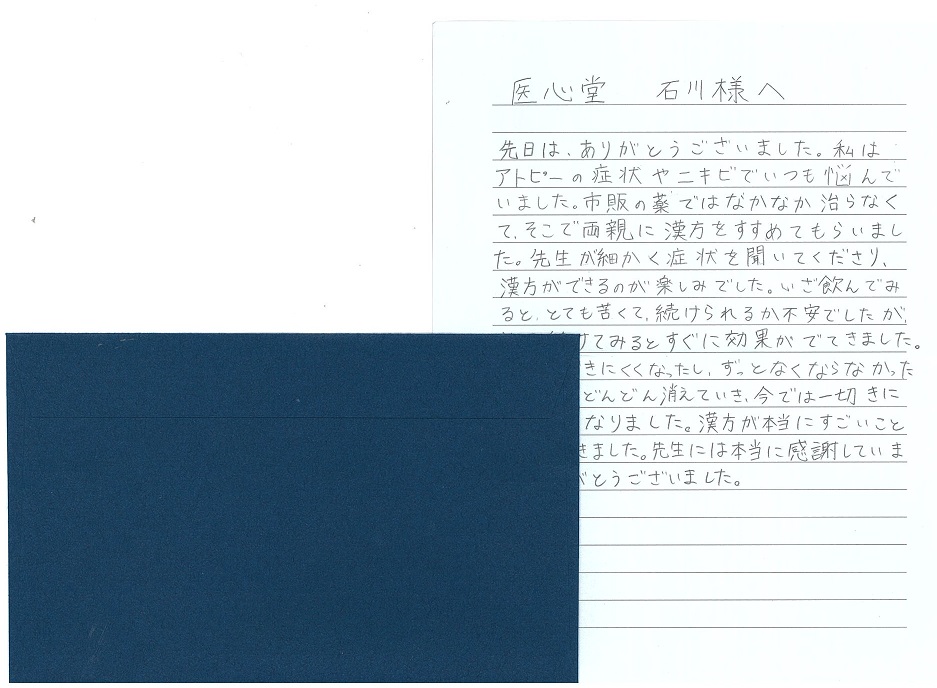 医心堂　石川様へ
先日は、ありがとうございました。私は
アトピーの症状やニキビでいつも悩んで
いました。市販の薬ではなかなか治らなく
て、そこで両親に漢方をすすめてもらいまし
た。先生が細かく症状を聞いてくださり、
漢方ができるのが楽しみでした。いざ飲んでみ
ると、とても苦くて、続けられるか不安でしたが、
けてみるとすぐに効果がでてきました。
きにくくなったし、ずっとなくならなかった
どんどん消えていき、今では一切きに
なりました。漢方が本当にすごいこと
きました。先生には本当に感謝していま
がとうございました。